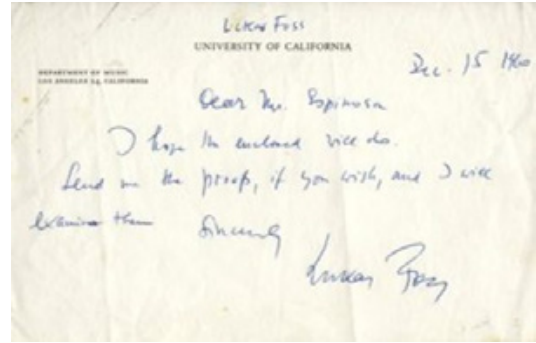 Lukas Foss
UNIVERSITY OF CALIFORNIA
Dec. 15 1960
DEPARTMENT OF MUSIC
LOS ANGELES 24, CALIFORNIA
Dear Mr. Espinosa
I hope the enclosed will do.
Send me the proofs, if you wish, and I will
examine them
Sincerely
Lukas Foss